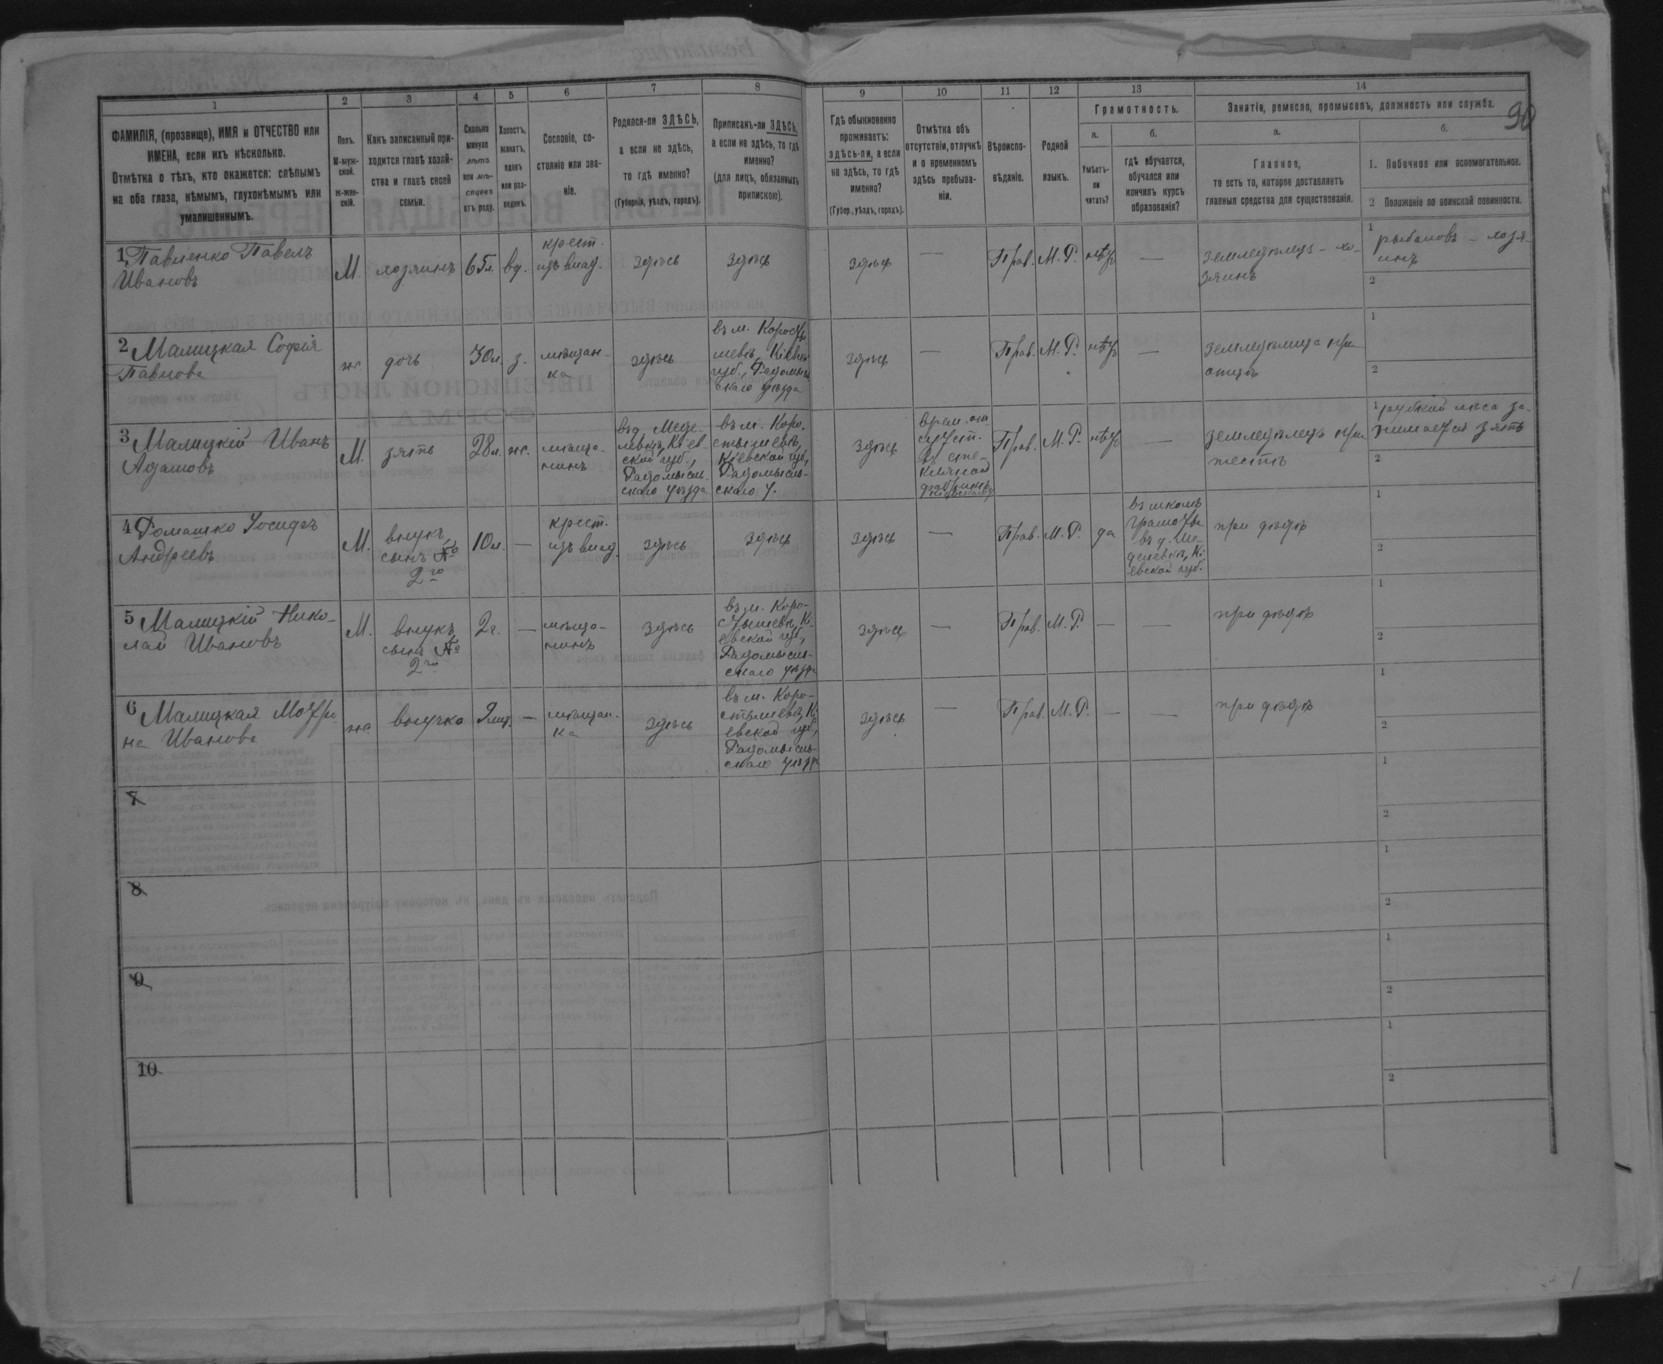 90
1 2 3 4 5 6 7 8 9 10 11 12 13 14
ФАМИЛІЯ, (прозвище), ИМЯ и ОТЧЕСТВО или
ИМЕНА, если ихъ нѣсколько.
Отмѣтка о тѣхъ, кто окажется: слѣпымъ
на оба глаза, нѣмымъ, глухонѣмымъ или
умалишеннымъ.
Полъ.
М-муж-
ской.
Ж-жен-
скій.
Какъ записанный при-
ходится главѣ хозяй-
ства и главѣ своей
семьи.
Сколько
минуло
лѣтъ
или мѣ-
сяцевъ
отъ роду.
Холостъ,
женатъ,
вдовъ
или раз-
веденъ.
Сословіе, со-
стояніе или зва-
ніе.
Родился-ли ЗДѢСЬ,
а если не здѣсь,
то гдѣ именно?
(Губернія, уѣздъ, городъ).
Приписанъ-ли ЗДѢСЬ,
а если не здѣсь, то гдѣ
именно?
(для лицъ, обязанныхъ
припискою).
Гдѣ обыкновенно
проживаетъ:
здѣсь-ли, а если
не здѣсь, то гдѣ
именно?
(Губер., уѣздъ, городъ).
Отмѣтка объ
отсутствіи, отлучкѣ
и о временномъ
здѣсь пребыва-
ніи.
Вѣроиспо-
вѣданіе.
Родной
языкъ.
Грамотность.
а.
Умѣетъ-
ли
читать?
б.
гдѣ обучается,
обучался или
кончилъ курсъ
образованія?
Занятія, ремесло, промыселъ, должность или служба.
а.
Главное,
то есть то, которое доставляетъ
главныя средства для существованія.
б.
1. Побочное или вспомогательное.
2 Положеніе по воинской повинности.
1 Павленко Павелъ
Ивановъ
М.
хозяинъ
65 л.
вд.
крест.
изъ влад.
здѣсь
здѣсь
здѣсь
—
Прав.
М. Р.
нѣтъ
—
земледѣлецъ – хо-
зяинъ
1 рыболовъ – хозя-
инъ
2
2 Малицкая Софія
Павлова
ж
дочь
30 л.
з.
мѣщан-
ка
здѣсь
въ м. Корост
шевѣ, Кіевск
губ., Радомысл
скаго уѣзда
здѣсь
—
Прав.
М. Р.
нѣтъ
—
земледѣлица при
отцѣ
1
2
3 Малицкій Иванъ
Адамовъ
М.
зять
28 л.
ж.
мѣща-
нинъ
Кіев
ской губ.,
Радомысль-
скаго уѣзда
въ м. Коро-
стышевѣ,
Кіевской губ,
Радомысль-
скаго у.
здѣсь
врем. от
сутст.
Прав.
М. Р.
нѣтъ
—
земледѣлецъ при
тестѣ
1 рубкой лѣса за-
нимается зять
2
4 Ромашко Іосифъ
Андреевъ
М.
внукъ,
сынъ №
2го
10 л.
—
крест.
изъ влад.
здѣсь
здѣсь
здѣсь
—
Прав.
М. Р.
да
въ школѣ
грамоты
Кі-
евской губ.
при дѣдѣ
1
2
5 Малицкій Нико-
лай Ивановъ
М.
внукъ,
сынъ №
2го
2 г.
—
мѣща-
нинъ
здѣсь
въ м. Коро-
стышевѣ, Кі-
евской губ,
Радомысль-
скаго уѣзда
здѣсь
—
Прав.
М. Р.
—
—
при дѣдѣ
1
2
6 Малицкая Мотро-
на Иванова
ж.
внучка
2 мц.
—
мѣщан-
ка
здѣсь
въ м. Коро-
стышевѣ, Кі
евской губ,
Радомысль-
скаго уѣзда
здѣсь
—
Прав.
М. Р.
—
—
при дѣдѣ
1
2
7
1
2
8
1
2
9
1
2
10
1
2